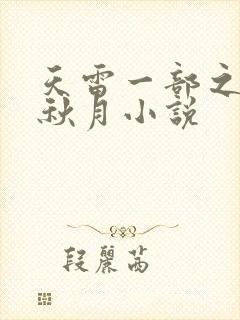 天雷一部之
秋月小説
段麗茜